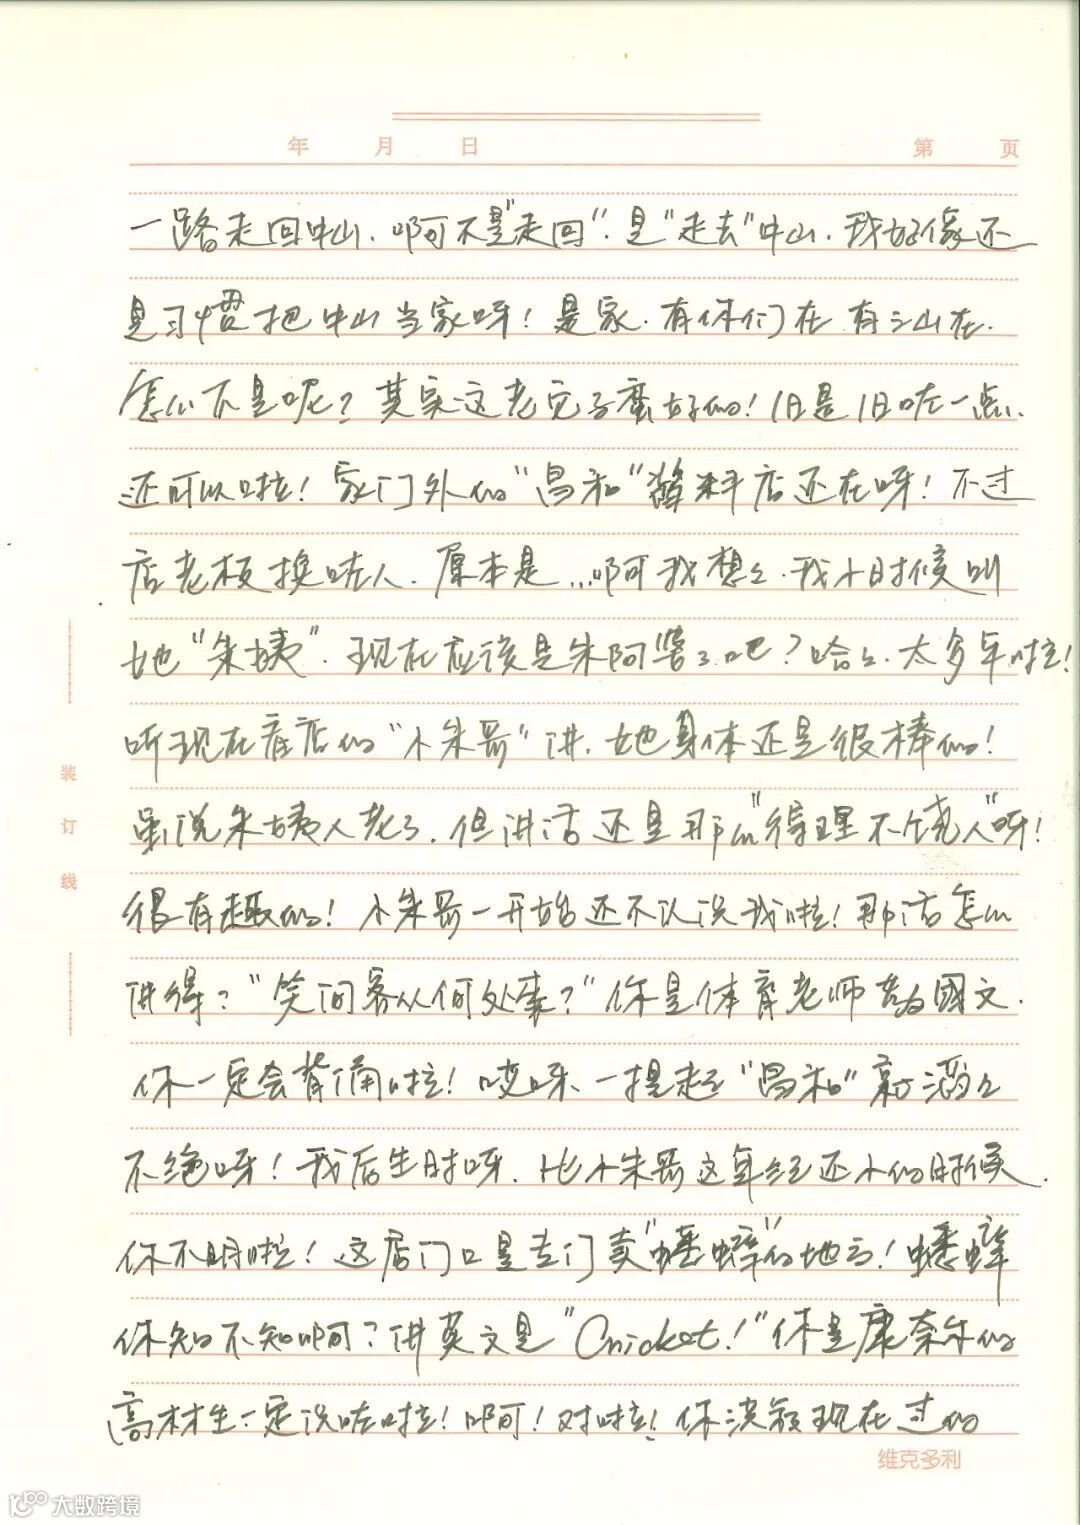 年 月 日 第 页
一路走回中山.啊不是"走回".是"走去"中山.我好像还
是习惯把中山当家呀!是家.有你们在有三山在.
怎么不是呢?其实这老宅子蛮好的!旧是旧咗一点.
还可以啦!家门外的"昌和"醬料店还在呀!不过
店老板换咗人.原本是...啊我想々.我小时候叫
她"朱姨".现在应该是朱阿婆了吧?哈々.太多年啦!
听现在看店的"小朱哥"讲.她身体还是很棒的!
虽说朱姨人老了.但讲话还是那么"得理不饶人"呀!
很有趣的!小朱哥一开始还不认识我啦!那话怎么
讲得?"笑问客从何处来?"你是体育老师教國文.
你一定会背诵啦!哎呀.一提起"昌和"就滔々
不绝呀!我后生时呀.比小朱哥这年纪还小的时候.
你不明啦!这店门口是专门卖"蟋蟀"的地方!蟋蟀
你知不知啊?讲英文是"Cricket!"你是康奈尔的
高材生一定识咗啦!啊!对啦!你决额现在过的
装
订
线
维克多利
大数跨境